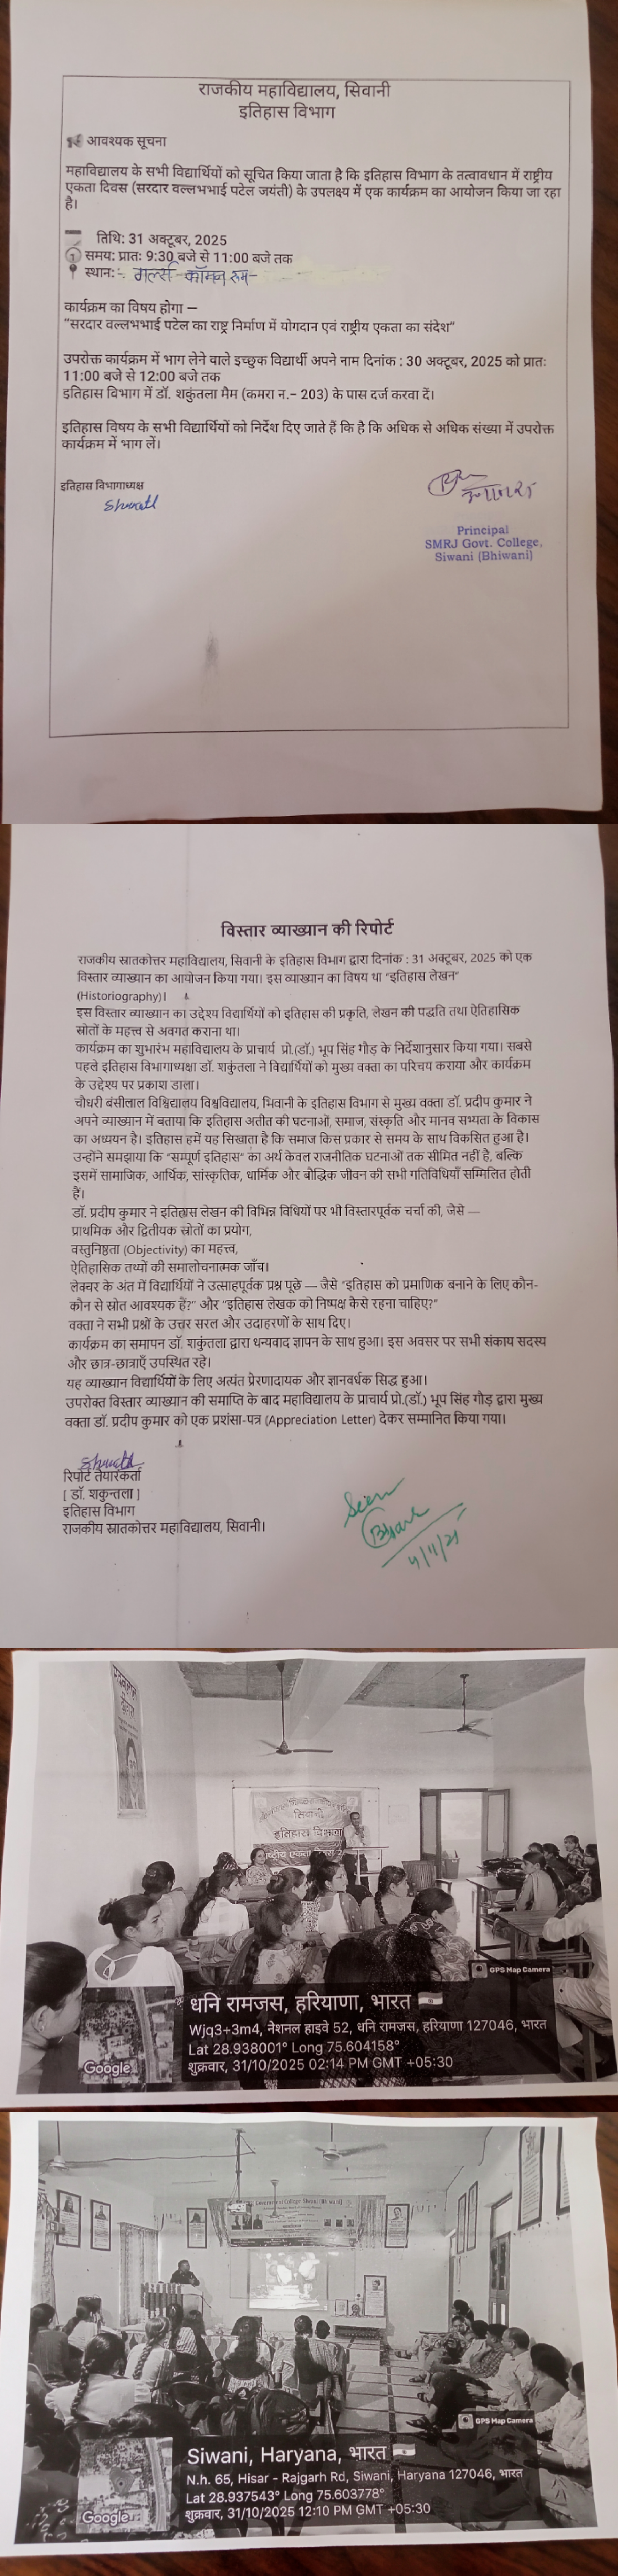 राजकीय महाविद्यालय, सिवानी
इतिहास विभाग
आवश्यक सूचना
महाविद्यालय के सभी विद्यार्थियों को सूचित किया जाता है कि इतिहास विभाग के तत्वावधान में राष्ट्रीय
एकता दिवस (सरदार वल्लभभाई पटेल जयंती) के उपलक्ष्य में एक कार्यक्रम का आयोजन किया जा रहा
है।
तिथि: 31 अक्टूबर, 2025
समय: प्रातः 9:30 बजे से 11:00 बजे तक
स्थान:- गर्ल्स कॉमन रूम-
कार्यक्रम का विषय होगा —
"सरदार वल्लभभाई पटेल का राष्ट्र निर्माण में योगदान एवं राष्ट्रीय एकता का संदेश"
उपरोक्त कार्यक्रम में भाग लेने वाले इच्छुक विद्यार्थी अपने नाम दिनांक : 30 अक्टूबर, 2025 को प्रातः
11:00 बजे से 12:00 बजे तक
इतिहास विभाग में डॉ. शकुंतला मैम (कमरा न.- 203) के पास दर्ज करवा दें।
इतिहास विषय के सभी विद्यार्थियों को निर्देश दिए जाते हैं कि है कि अधिक से अधिक संख्या में उपरोक्त
कार्यक्रम में भाग लें।
इतिहास विभागाध्यक्ष
Principal
SMRJ Govt. College,
Siwani (Bhiwani)
विस्तार व्याख्यान की रिपोर्ट
राजकीय स्नातकोत्तर महाविद्यालय, सिवानी के इतिहास विभाग द्वारा दिनांक : 31 अक्टूबर, 2025 को एक
विस्तार व्याख्यान का आयोजन किया गया। इस व्याख्यान का विषय था "इतिहास लेखन"
(Historiography)।
इस विस्तार व्याख्यान का उद्देश्य विद्यार्थियों को इतिहास की प्रकृति, लेखन की पद्धति तथा ऐतिहासिक
स्रोतों के महत्त्व से अवगत कराना था।
कार्यक्रम का शुभारंभ महाविद्यालय के प्राचार्य प्रो.(डॉ.) भूप सिंह गौड़ के निर्देशानुसार किया गया। सबसे
पहले इतिहास विभागाध्यक्षा डॉ. शकुंतला ने विद्यार्थियों को मुख्य वक्ता का परिचय कराया और कार्यक्रम
के उद्देश्य पर प्रकाश डाला।
चौधरी बंसीलाल विश्विद्यालय विश्वविद्यालय, भिवानी के इतिहास विभाग से मुख्य वक्ता डॉ. प्रदीप कुमार ने
अपने व्याख्यान में बताया कि इतिहास अतीत की घटनाओं, समाज, संस्कृति और मानव सभ्यता के विकास
का अध्ययन है। इतिहास हमें यह सिखाता है कि समाज किस प्रकार से समय के साथ विकसित हुआ है।
उन्होंने समझाया कि "सम्पूर्ण इतिहास" का अर्थ केवल राजनीतिक घटनाओं तक सीमित नहीं है, बल्कि
इसमें सामाजिक, आर्थिक, सांस्कृतिक, धार्मिक और बौद्धिक जीवन की सभी गतिविधियाँ सम्मिलित होती
हैं।
डॉ. प्रदीप कुमार ने इतिहास लेखन की विभिन्न विधियों पर भी विस्तारपूर्वक चर्चा की, जैसे —
प्राथमिक और द्वितीयक स्रोतों का प्रयोग,
वस्तुनिष्ठता (Objectivity) का महत्त्व,
ऐतिहासिक तथ्यों की समालोचनात्मक जाँच।
लेक्चर के अंत में विद्यार्थियों ने उत्साहपूर्वक प्रश्न पूछे — जैसे "इतिहास को प्रमाणिक बनाने के लिए कौन-
कौन से स्रोत आवश्यक हैं?" और "इतिहास लेखक को निष्पक्ष कैसे रहना चाहिए?"
वक्ता ने सभी प्रश्नों के उत्तर सरल और उदाहरणों के साथ दिए।
कार्यक्रम का समापन डॉ. शकुंतला द्वारा धन्यवाद ज्ञापन के साथ हुआ। इस अवसर पर सभी संकाय सदस्य
और छात्र-छात्राएँ उपस्थित रहे।
यह व्याख्यान विद्यार्थियों के लिए अत्यंत प्रेरणादायक और ज्ञानवर्धक सिद्ध हुआ।
उपरोक्त विस्तार व्याख्यान की समाप्ति के बाद महाविद्यालय के प्राचार्य प्रो.(डॉ.) भूप सिंह गौड़ द्वारा मुख्य
वक्ता डॉ. प्रदीप कुमार को एक प्रशंसा-पत्र (Appreciation Letter) देकर सम्मानित किया गया।
रिपोर्ट तैयारकर्ता
[ डॉ. शकुन्तला ]
इतिहास विभाग
राजकीय स्नातकोत्तर महाविद्यालय, सिवानी।
Seen
4/11/25
सिवानी
इतिहास विभाग
GPS Map Camera
धनि रामजस, हरियाणा, भारत
Wjq3+3m4, नेशनल हाइवे 52, धनि रामजस, हरियाणा 127046, भारत
Lat 28.938001° Long 75.604158°
शुक्रवार, 31/10/2025 02:14 PM GMT +05:30
Google
Government College, Siwani (Bhiwani)
GPS Map Camera
Siwani, Haryana, भारत
N.h. 65, Hisar - Rajgarh Rd, Siwani, Haryana 127046, भारत
Lat 28.937543° Long 75.603778°
शुक्रवार, 31/10/2025 12:10 PM GMT +05:30
Google